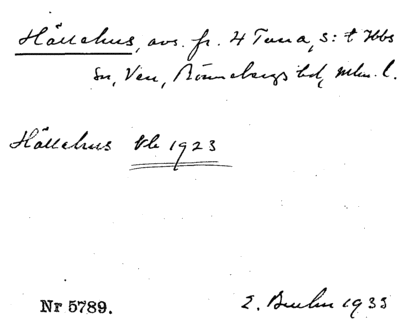 Hällehus, avs. fr. 4 Tuna, S:t Ibbs
sn, Ven, Rönnebergs hd, Mlm. l.
Hällehus Vb 1923
Nr 5789. 1933